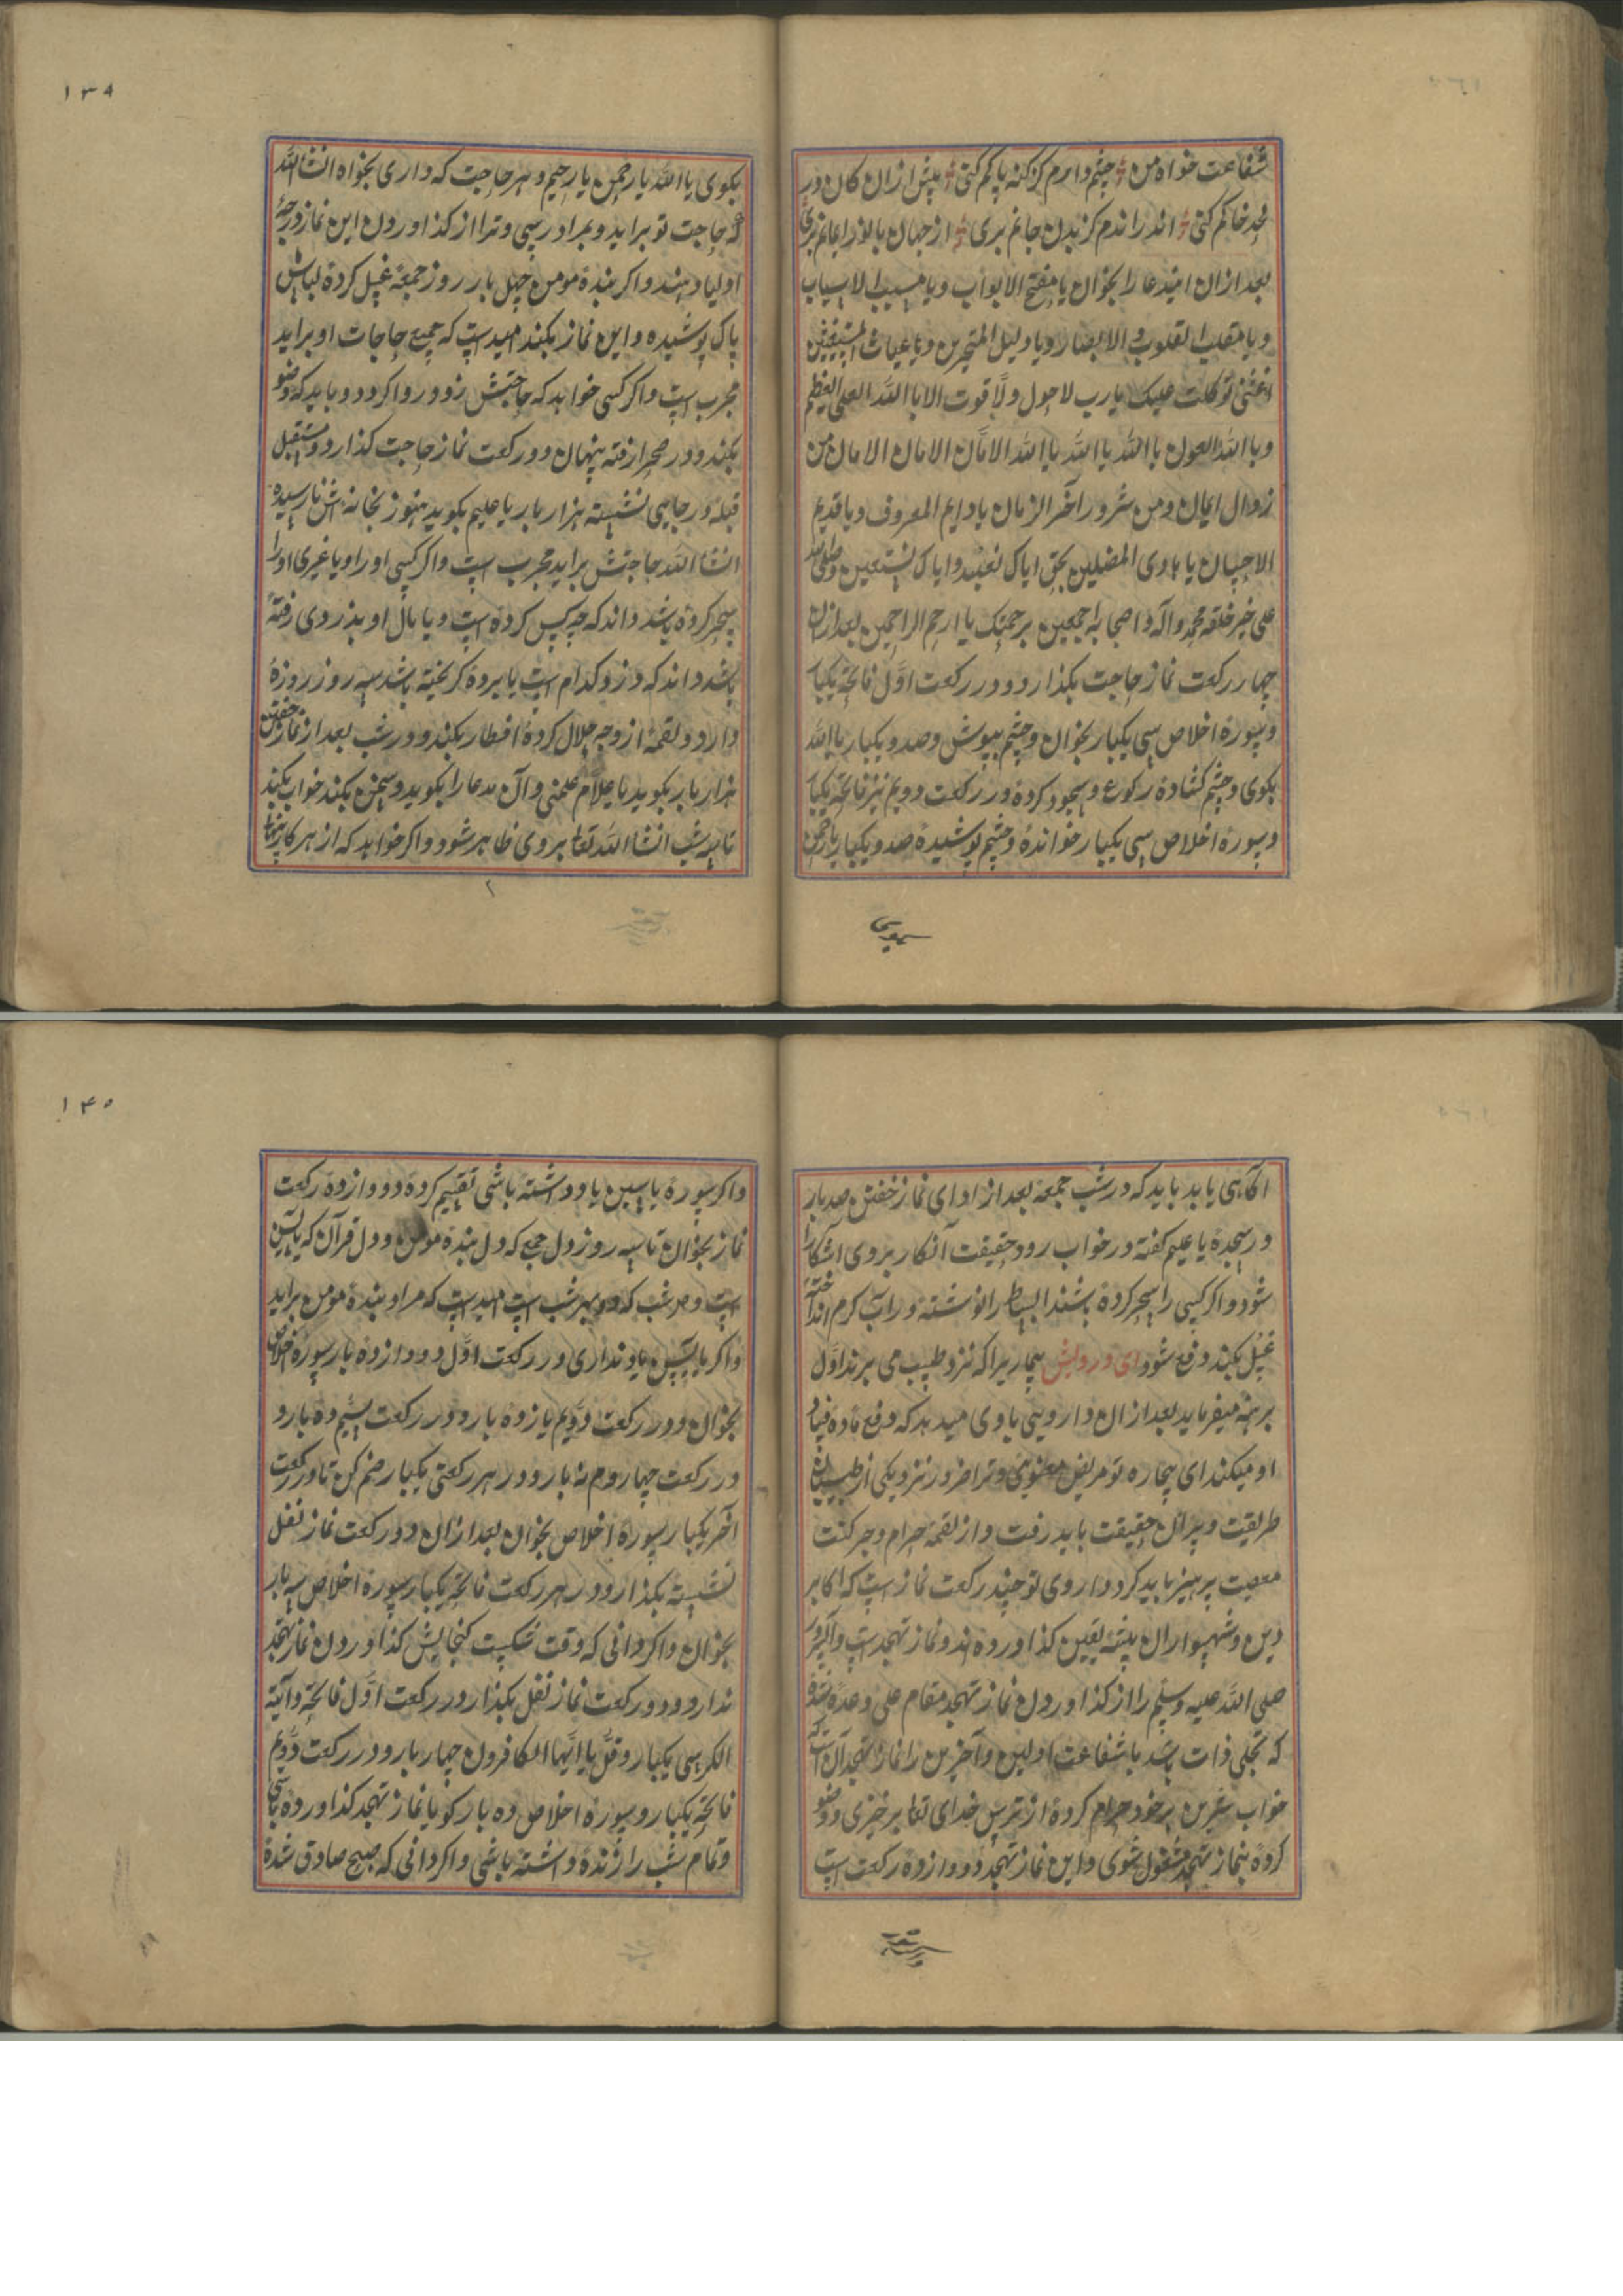 شفاعت خواه من چشم دارم کز گنه پاکم کنی پیش ازان کان در
لحد خاکم کنی اندراندم کز بدن جانم بری از جهان با نور ایمانم بری
بعد ازان ایندعا را بخوان یا مفتح الابواب و یا مسبب الاسباب
و یا مقلب القلوب و الابصار و یا دلیل المتحیرین و یا غیاث المستغیثین
اغثنی توکلت علیک یا رب لا حول ولا قوت الا باالله العلی العظیم
و باالله العون یا الله یا الله یا الله الامان الامان الامان من
زوال ایمان و من شرور آخر الزمان یا دایم المعروف و یا قدیم
الاحسان یا هادی المضلین بحق ایاک نعبد و ایاک نستعین و صلی الله
علی خیر خلقه محمد و آله و اصحابه اجمعین برحمتک یا ارحم الراحمین بعد ازان
چهار رکعت نماز حاجت بگذار و در رکعت اول فاتحه یکبار
و سوره اخلاص سی یکبار بخوان و چشم بپوش و صد و یکبار یا الله
بگوی و چشم کشاده رکوع و سجود کرده در رکعت دویم نیز فاتحه یکبار
و سوره اخلاص سی یکبار خوانده و چشم پوشیده صد و یکبار یا رحمن
۱۳۹
بکوی یا الله یا رحمن یا رحیم و هر حاجت که داری بخواه انشا الله
که حاجت تو براید و بمراد رسی و ترا از کذاوردن این نماز درجه
اولیا دهند و اکر بنده مومن چهل بار روز جمعه غسل کرده لباس
پاک پوشیده و این نماز بکند امیدست که جمیع حاجات او براید
مجرب است و اکر کسی خواهد که حاجتش زود روا کردد و باید که وضو
بکند و در صحرا رفته پنهان دو رکعت نماز حاجت کذارد و مستقبل
قبله در جایی نشسته هزار بار یا علیم بکوید هنوز بخانه اش نارسیده
انشا الله حاجتش براید مجرب است و اکر کسی او را و یا غیری او را
سحر کرده باشد داند که چه کس کرده است و یا مال او بدزدی رفته
باشد داند که دزد کدام است یا برده کریخته باشد سه روز روزه
دارد و لقمه از وجه حلال کرده افطار بکند و در شب بعد از نماز خفتن
هزار بار بکوید یا علام علمنی و آن مدعا را بکوید و سخن نکند خواب بکند
تا سه شب انشا الله تعا بروی ظاهر شود و اکر خواهد که از هر کار پنهان
سموسی
اکاهی یابد باید که در شب جمعه بعد از ادای نماز خفتن صد بار
در سجده یا علیم کفته در خواب رود حقیقت آنکار بروی آشکارا
شود و اکر کسی را سحر کرده باشند الباسط را نوشته در آب کرم انداخته
غسل بکند دفع شود ای درویش بیمار یرا که نزد طبیب می برند اول
پرهیز میفرماید بعد ازان دارویی با وی میدهد که دفع ماده فساد
او میکند ای بیچاره تو مریض معنوی و ترا ضرور نزد یکی از طبیبان
طریقت و پیران حقیقت باید رفت و از لقمه حرام و حرکت
معصیت پرهیز باید کرد داروی تو چند رکعت نماز است که اکابر
دین و شهسواران بیشه یقین کذاورده اند و نماز تهجد است و آن سرور
صلی الله علیه وسلم را از کذاوردن نماز تهجد مقام علی وعده شده
که تجلی ذات باشد با شفاعت اولین و آخرین را نماز تهجد آن است که
خواب شیرین بر خود حرام کرده از ترس خدای تعا برخیزی و وضو
کرده بنماز تهجد مشغول شوی و این نماز تهجد دو وازده رکعت است
۱۴۰
و اکر سوره یاسین یاد داشته باشی تقسیم کرده دو وازده رکعت
نماز بخوان تا سه روز دل جمع که دل بنده مومن و دل قرآن که یاسین
است و هر شب که دو بهر شب است امیدست که مراد بنده مومن براید
و اکر یاسین یاد نداری در رکعت اول دو وازده بار سوره اخلاص
بخوان و در رکعت دویم یازده بار و در رکعت سیم ده بار و
در رکعت چهاروم نه بار و در هر رکعتی یکبار ضم کن تا در رکعت
آخر یکبار سوره اخلاص بخوان بعد ازان دو رکعت نماز نفل
نشسته بکذار و در هر رکعت فاتحه یکبار سوره اخلاص سه بار
بخوان و اکر دانی که وقت شکست کنجایش کذاوردن نماز تهجد
ندارد و دو رکعت نماز نفل بکذار در رکعت اول فاتحه و آیة
الکرسی یکبار و قل یا ایها الکافرون چهار بار و در رکعت دویم
فاتحه یکبار و سوره اخلاص ده بار کویا نماز تهجد کذاورده باشی
و تمام شب را زنده داشته باشی و اکر دانی که صبح صادق شده